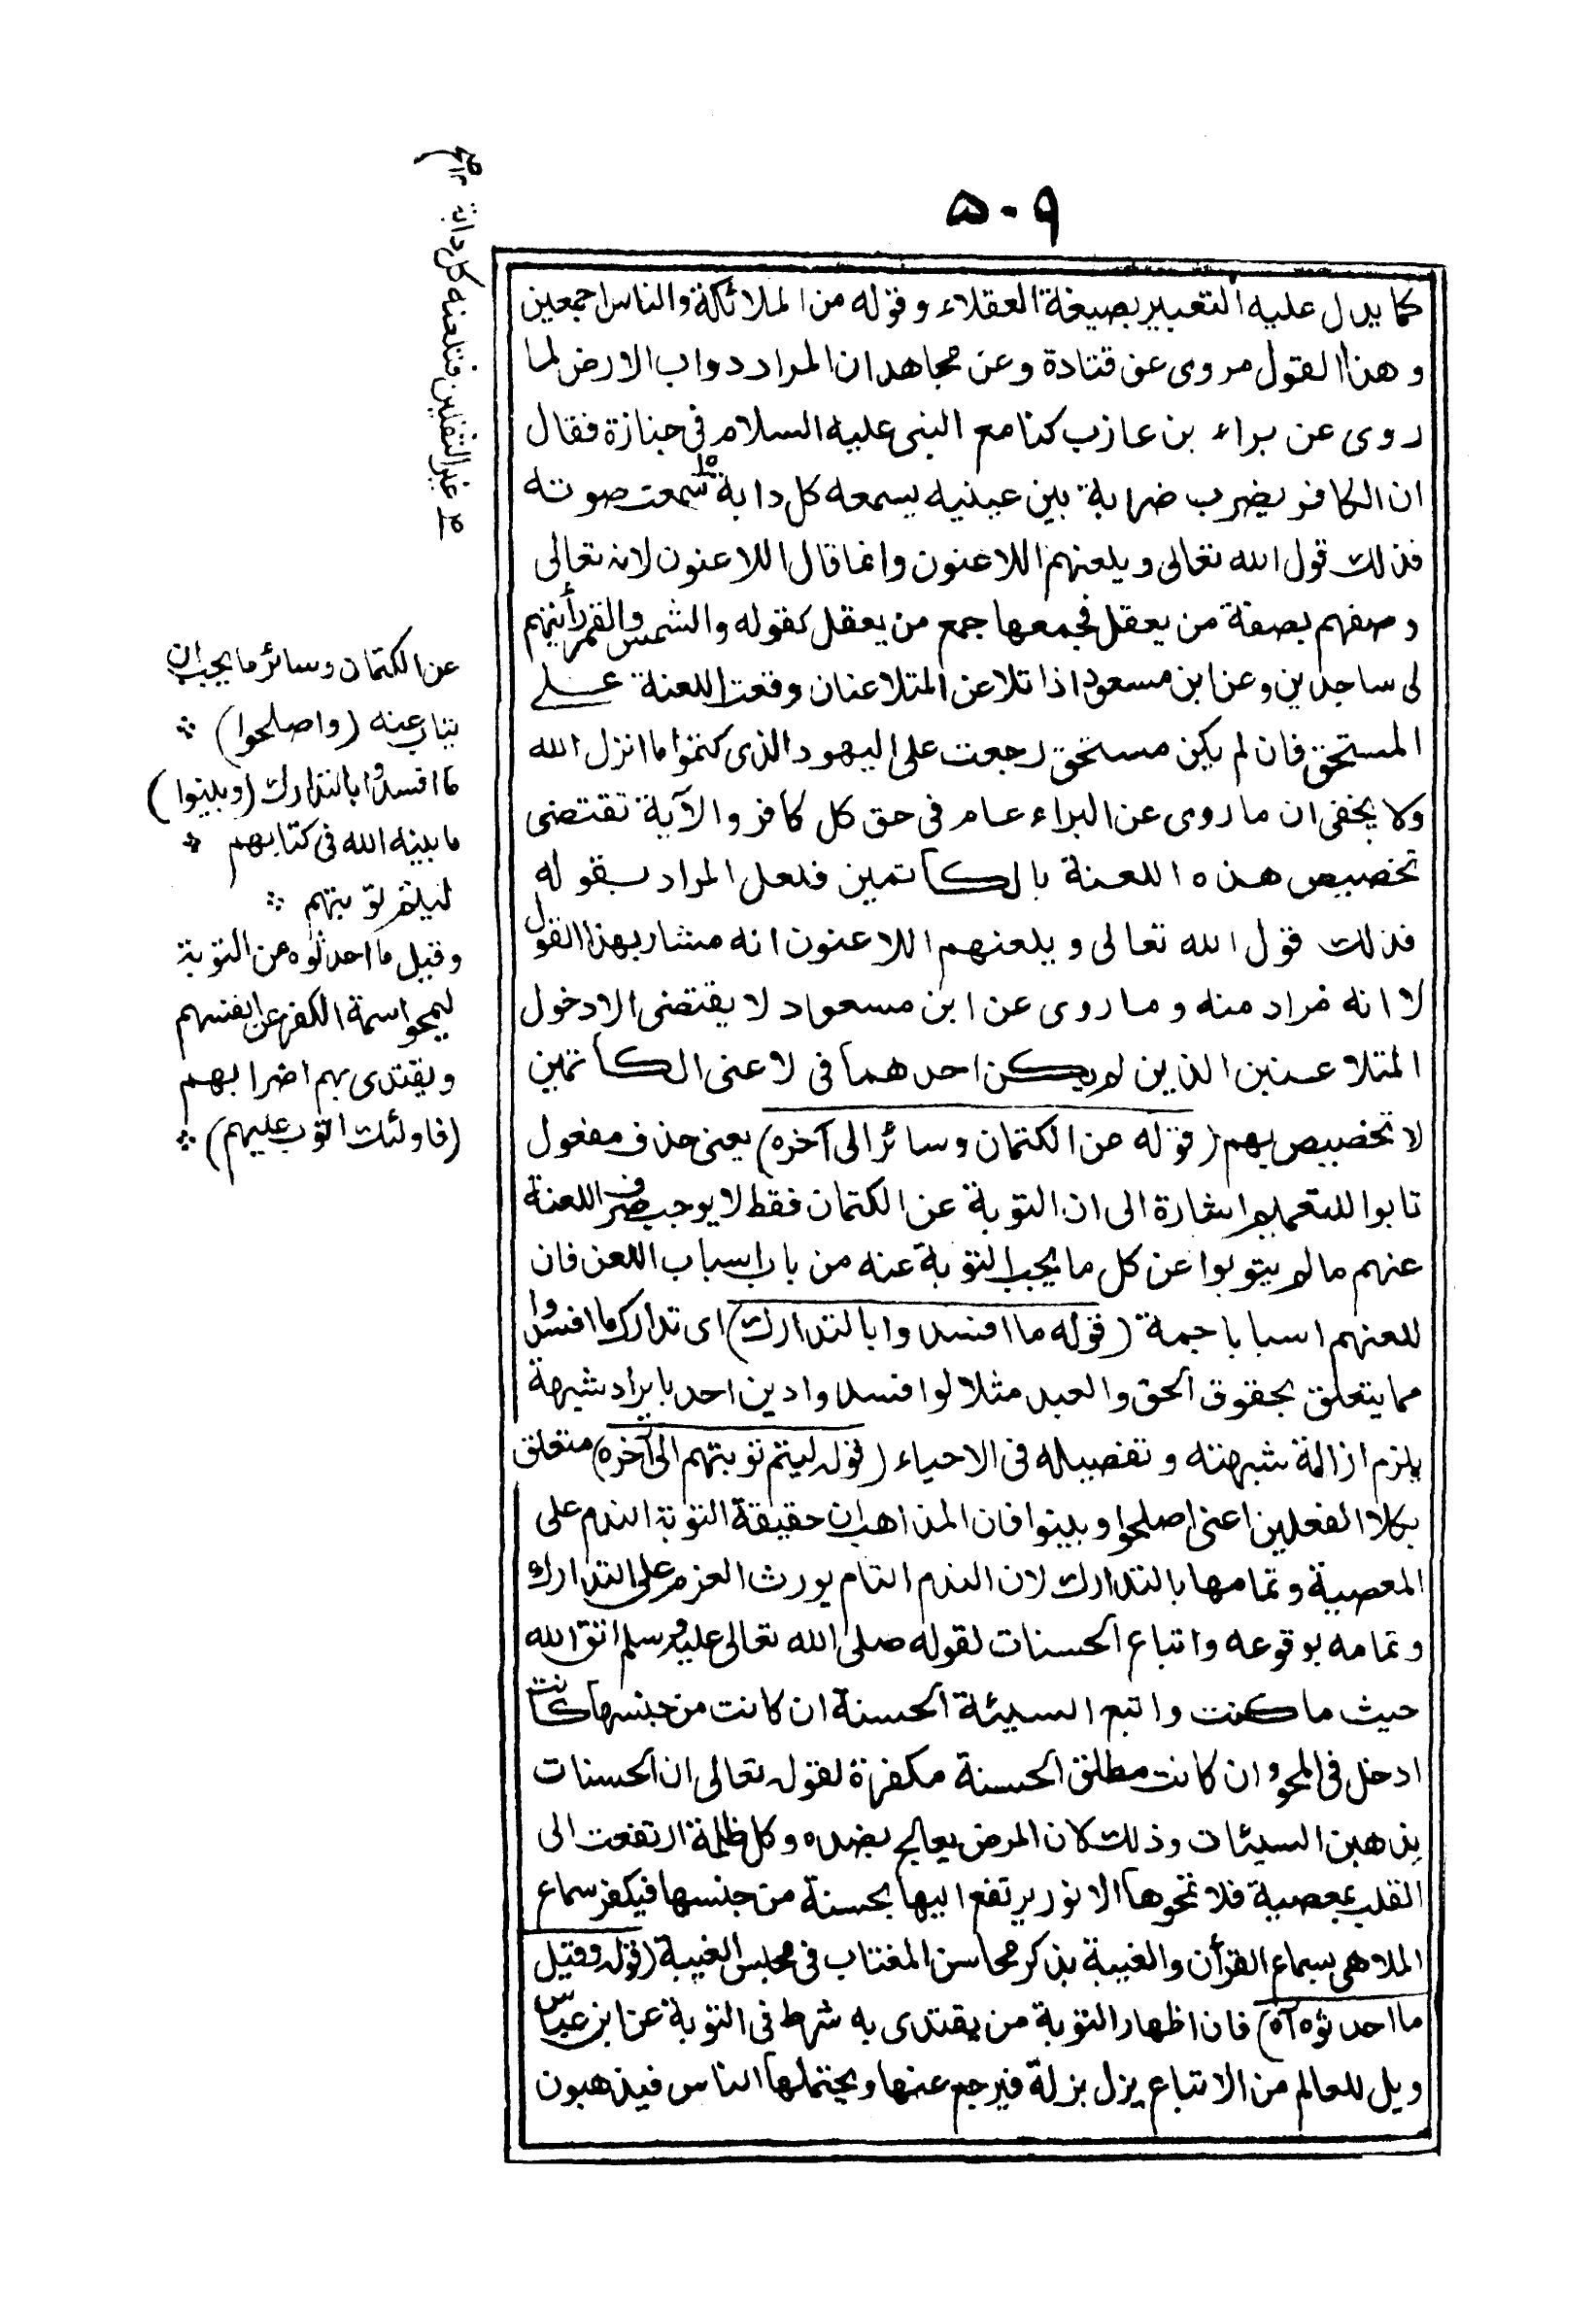 ٥٠٩
كما يدل عليه التعبير بصيغة العقلاء وقوله من الملائكة والناس اجمعين
وهذا القول مروى عن قتادة وعن مجاهد ان المراد دواب الارض لما
روى عن براء بن عازب كنا مع النبى عليه السلام فى جنازة فقال
ان الكافر يضرب ضربة بين عينيه يسمعه كل دابة سمعت صوته
فذلك قول الله تعالى ويلعنهم اللاعنون وانما قال اللاعنون لانه تعالى
وصفهم بصفة من يعقل فجمعها جمع من يعقل كقوله والشمس والقمر رأيتهم
لى ساجدين وعن ابن مسعود اذا تلاعن المتلاعنان وقعت اللعنة على
المستحق فان لم يكن مستحق رجعت على اليهود الذى كتموا ما انزل الله
ولا يخفى ان ما روى عن البراء عام فى حق كل كافر والآية تقتضى
تخصيص هذه اللعنة بالكاتمين فلعل المراد بقوله
فذلك قول الله تعالى ويلعنهم اللاعنون انه مشار بهذا القول
لا انه مراد منه وما روى عن ابن مسعود لا يقتضى الا دخول
المتلاعنين الذين لم يكن احدهما فى لاعنى الكاتمين
لا تخصيص بهم (قوله عن الكتمان وسائر الى آخره) يعنى حذف مفعول
تابوا للتعميم اشارة الى ان التوبة عن الكتمان فقط لا يوجب صرف اللعنة
عنهم ما لم يتوبوا عن كل ما يجب التوبة عنه من باب اسباب اللعن فان
للعنهم اسبابا جمة (قوله ما افسدوا بالتدارك) اى تدارك ما افسدوا
مما يتعلق بحقوق الحق والعبد مثلا لو افسدوا دين احد بايراد شبهة
يلزم ازالة شبهته وتفصيله فى الاحياء (قوله ليتم توبتهم الى آخره) متعلق
بكلا الفعلين اعنى اصلحوا وبينوا فان المذاهب ان حقيقة التوبة الندم على
المعصية وتمامها بالتدارك لان الندم التام يورث العزم على التدارك
وتمامه بوقوعه واتباع الحسنات لقوله صلى الله تعالى عليه وسلم اتق الله
حيث ما كنت واتبع السيئة الحسنة ان كانت من جنسها كانت
ادخل فى المحو وان كانت مطلق الحسنة مكفرة لقوله تعالى ان الحسنات
يذهبن السيئات وذلك لان المرض يعالج بضده وكل ظلمة ارتفعت الى
القلب بمعصية فلا تمحوها الا نور يرتفع اليها بحسنة من جنسها فيكفر سماع
الملاهى بسماع القرأن والغيبة بذكر محاسن المغتاب فى مجلس الغيبة (قوله وقيل
ما احدثوه آه) فان اظهار التوبة من يقتدى به شرط فى التوبة عن ابن عباس
ويل للعالم من الاتباع يزل بزلة فيرجع عنها ويحتملها الناس فيذهبون
غير الثقلين فتلعنه كل دابة
عن الكتمان وسائر ما يجب ان
يتاب عنه (واصلحوا)
ما افسدوا بالتدارك (وبينوا)
ما بينه الله فى كتابهم
ليتم توبتهم
وقيل ما احدثوه من التوبة
ليمحوا سمة الكفر عن انفسهم
ويقتدى بهم اضرابهم
(فاولئك اتوب عليهم)